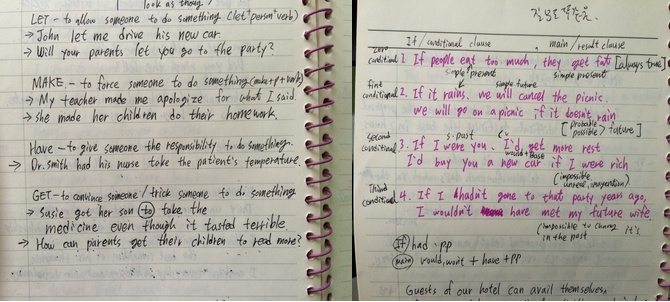 look as though
LET - to allow someone to do something (let+person+verb)
→ John let me drive his new car.
→ Will your parents let you go to the party?
MAKE - to force someone to do something (make+p+verb)
→ My teacher made me apologize for what I said.
→ she made her children do their homework.
Have - to give someone the responsibility to do something.
→ Dr. Smith had his nurse take the patient's temperature.
GET - to convince someone / trick someone to do something
→ Susie got her son to take the
medicine even though it tasted terrible
→ How can parents get their children to read more?
If / conditional clause , main / result clause
zero conditional 1. If people eat too much, they get fat [always true]
simple present
first conditional 2. If it rains, we will cancel the picnic.
simple future
we will go on a picnic if it doesn't rain
[probable, possible > future]
second conditional 3. If I were you, I'd get more rest
s.past would + Base
I'd buy you a new car if I were rich
Third conditional 4. If I hadn't gone to that party years ago,
I wouldn't have met my future wife
(impossible to change it's in the past
If had pp
main would, won't + have + pp
Guests of our hotel can avail themselves